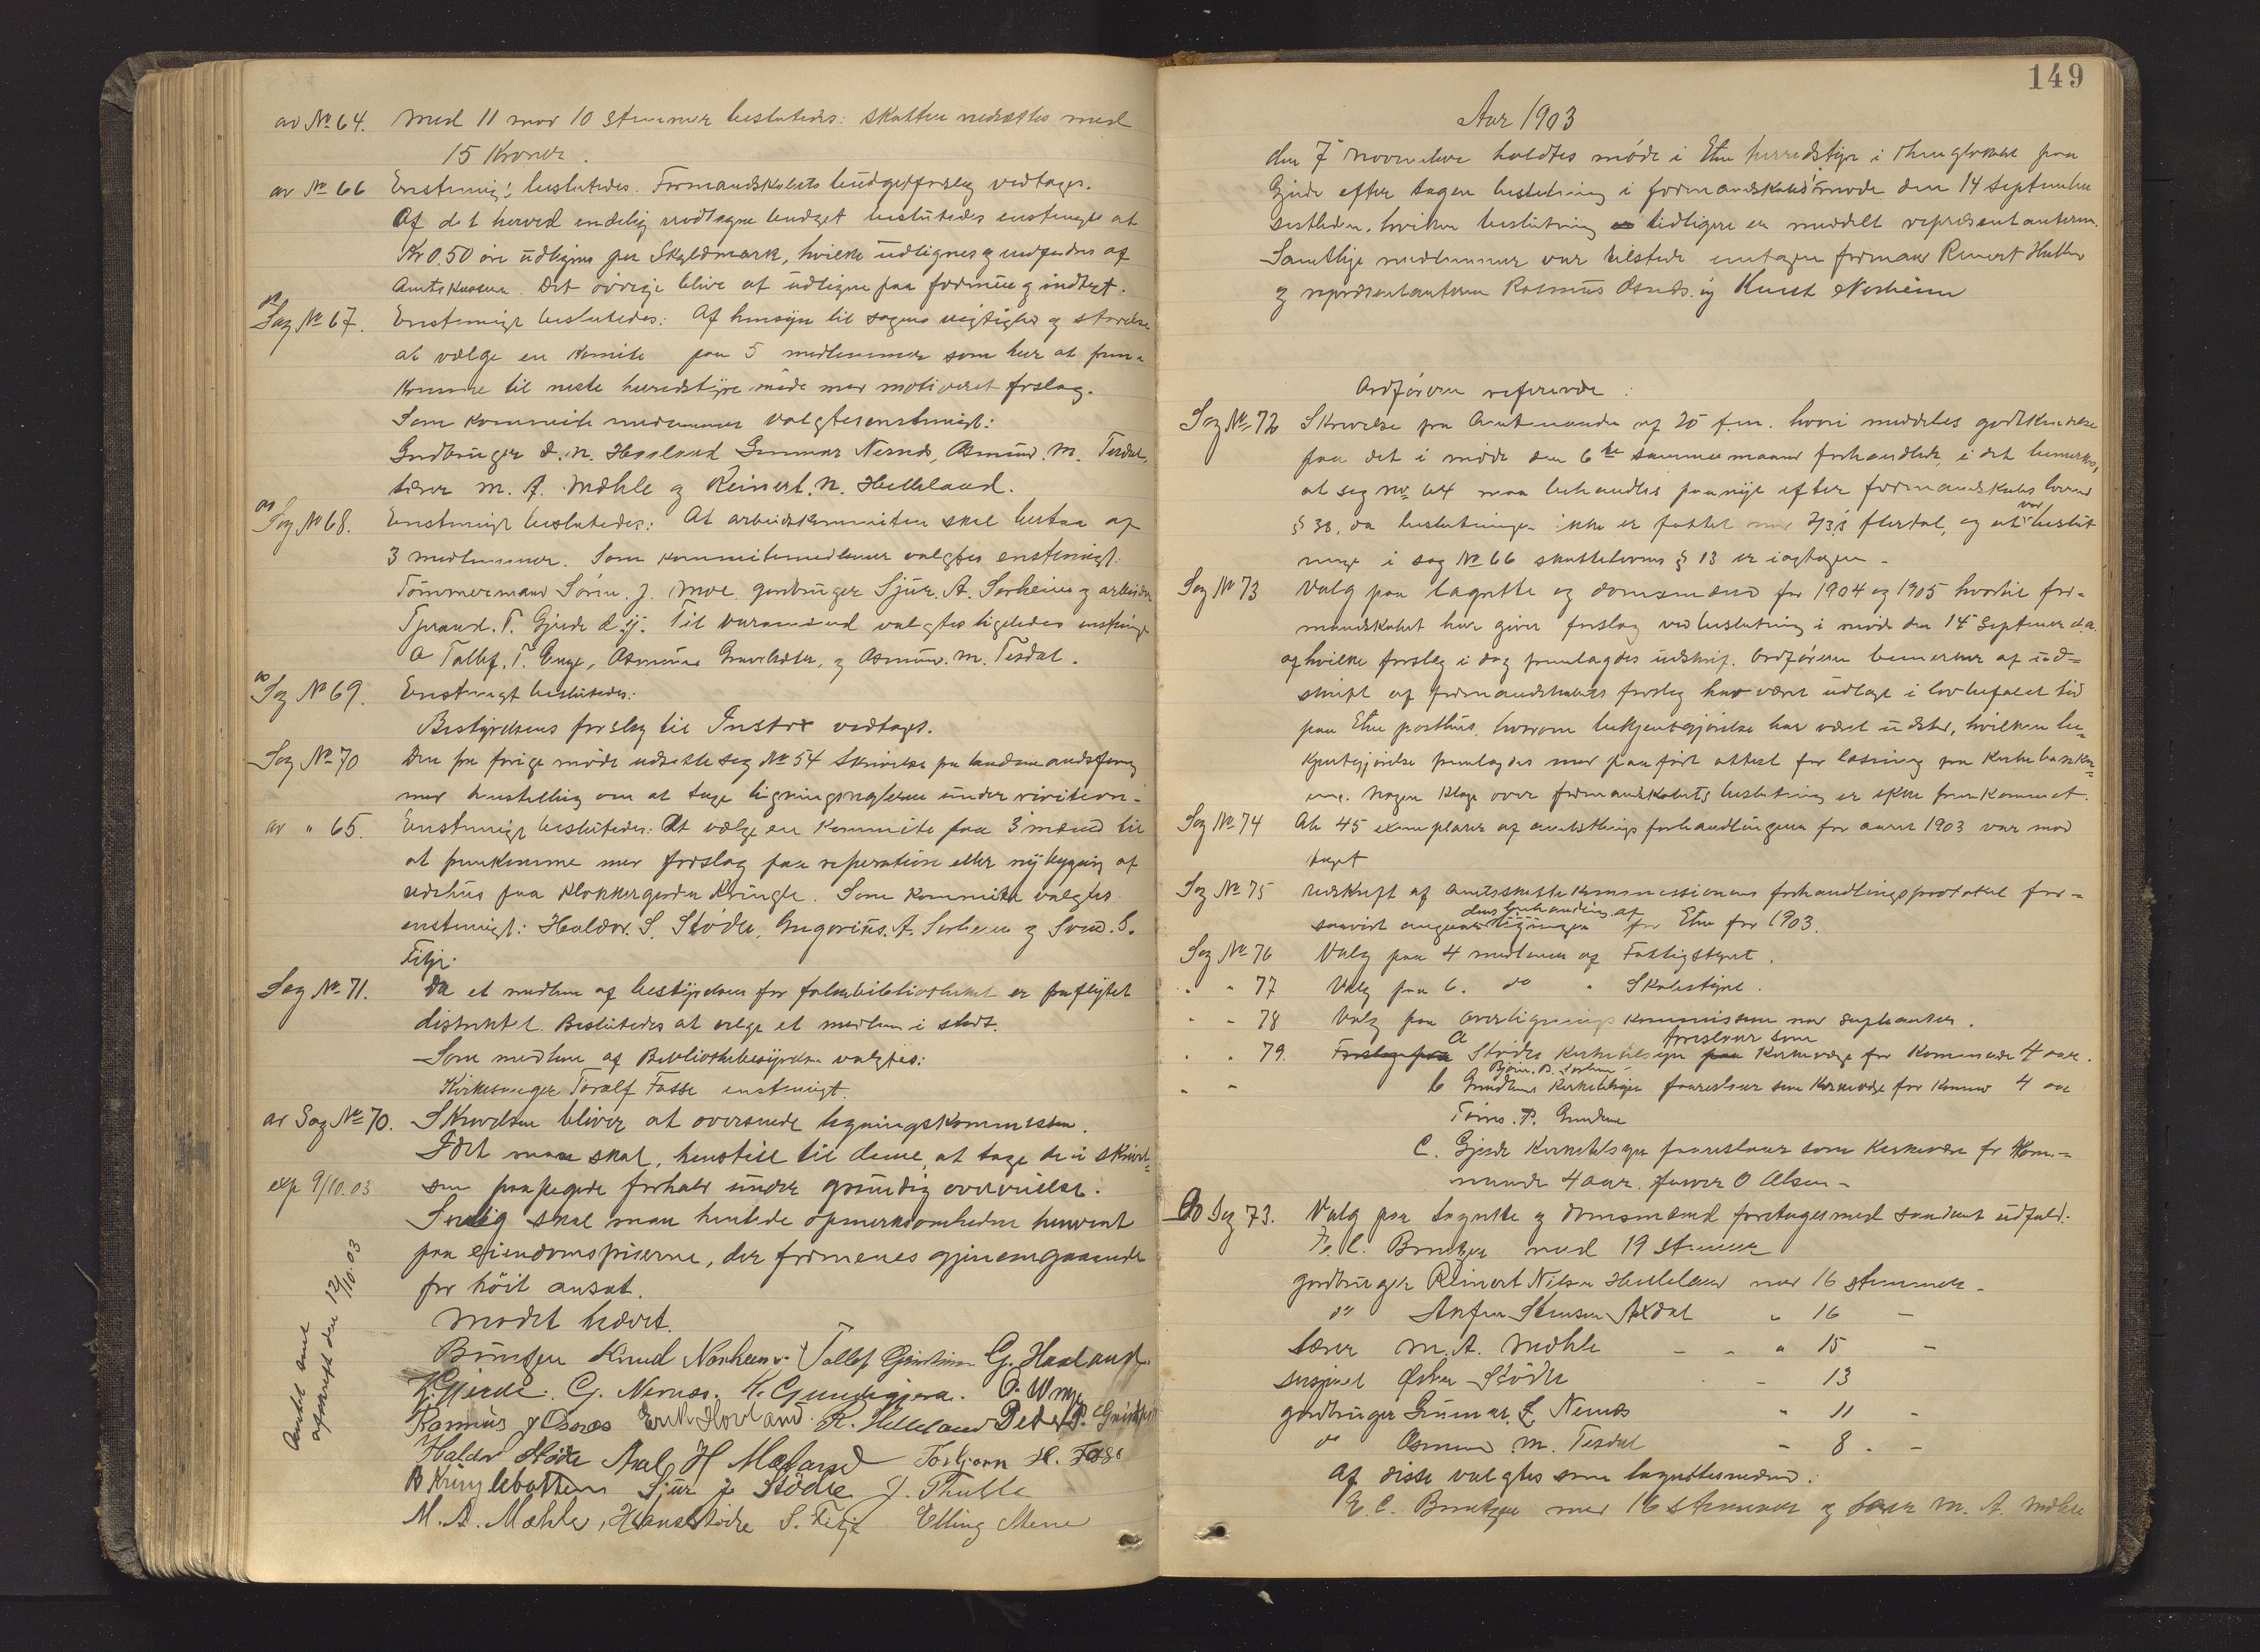 ad No 64. Med 11 mod 10 stemmer besluttedes: skatten nedsættes med
15 Kroner.
ad No 66 Enstemig: besluttedes. Formandskabets budgetforslag vedtages.
Af det herved endelig vedtagne budget besluttedes enstemigt at
Kr 0.50 øre udlignes per Skyldmark, hvilke udlignes og indfordres af
Amtskassen. Det øvrige blive at udligne paa formue og indtægt.
ad Sag No 67. Enstemigt besluttedes: Af hensyn til sagens vigtighed og størrelse
at vælge en Komite paa 5 medlemmer som har at frem-
komme til neste herredstyre møde med motiveret forslag.
Som Kommite medlemmer valgtes enstemigt:
Gardbruger O. N. Haaland Gunnar Nernæs, Asmund M. Tesdal,
lærer M. A. Mæhle og Reinert. N. Helleland.
ad Sag No 68. Enstemigt besluttedes: At arbeidskommiteen skal bestaa af
3 medlemmer. Som kommitemedlemmer valgtes enstemigt:
Tømmermand Søren. J. Moe. gardbruger Sjur. A. Sørheim og arbeider
T. Gjerde d.y. Til varamænd valgtes ligeledes enstemigt
a Tollef. T. Enge, Asmund Grindheim, og Asmun. M. Tesdal.
ad Sag No 69. Enstemigt besluttedes:
Bestyrelsens forslag til Instrx vedtages.
Sag No 70 Den fra forige møde udsatte sag No 54 Skrivelse fra landmandsforening
med henstilling om at tage ligningsreglerne under revision.
ad " 65. Enstemigt besluttedes: At vælge en Kommite paa 3 mænd til
at fremkomme med forslag paa reperation eller nybygging af
udehus paa Klokkergarden Kringle. Som Kommite valgtes
enstemigt: Haldor. S. Stødle, Gregorius. A. Sørheim og Svend. S.
Fitje.
Sag No 71. Da et medlem af bestyrelsen for folkebibliotheket er fraflyttet
distriktet. Besluttedes at velge et medlem i stedet.
Som medlem af Bibliothekbestyrelsen valgtes:
Kirkesanger Toralf Fosse enstemigt.
ad Sag No 70. Skrivelsen bliver at oversende ligningskommissionen.
Idet man skal, henstill til denne, at tage de i skrivel-
exp 9/10.03 sen paapegede forhold under grundig overveielse.
Særlig skal man henlede opmerksomheden henvent
paa eiendomspriserne, der formenes gjenemgaaende
for høit ansat.
Mødet hævet.
Bruntzen Knud Norheim Tollef Grindheim G. Haaland
K Gjerde. G. Nernæs. K. Grindheim. O. Unge
Rasmus J Osnæs Erik Hovland R. Helleland Peder P. Grindheim
Haldor Støle Axel H Mæland Torbjørn H. Fosse
B Kringlebotten Sjur J Stødle J. Thuelle
M. A. Mæhle, Hans Stødle S. Fitje Elling Stene
Anket sent
afskrift den 12/10.03
149
Aar 1903
den 7 November holdtes møde i Etne herredstyre i thinglokalet paa
Gjerde efter tagen beslutning i formandskabsmøde den 14 September
sestleden. hvilken beslutning tidligere er meddelt repræsentanterne.
Samtlige medlemmer var tilstede undtagen formand Reinert Hetleland
og repræsentanterne Rasmus Osnæs. og Knut Norheim
Ordføreren refererede:
Sag No 72 Skrivelse fra Amtmanden af 20 f.m. hvori meddeles godkendelse
paa det i møde den 6te samme maaned forhandlede, i det bemerkes,
at sag No 64 maa behandles paanyt efter formandskabs lovens
§ 38, da beslutningen ikke er fattet med 2/3's flertal, og at ved beslut
ninge i sag No 66 skattelovens § 13 er iagtagen.
Sag No 73 Valg paa lagrette og domsmænd for 1904 og 1905 hvortil for-
mandskabet har given forslag ved beslutning i møde den 14 September d.a.
af hvilke forslag i dag fremlagdes udskrift. Ordføreren bemerker at ud-
skrift af formandskabets forslag har været udlagt i lovbefalet tid
paa Etne posthus, hvorom bekjentgjørelse har været udstæd, hvilken be-
kjentgjørelse fremlagdes med paaført attest for læsning paa Kirkebakke-
ne. Nogen klage over formandskabets beslutning er ikke fremkommet.
Sag No 74 At 45 exemplarer af amtsthings forhandlingerne for aaret 1903 var mod
taget
Sag No 75 Udskrift af amtsskattekommissionens forhandlingsprotokol for-
saavidt angaar dens behandling af ligningen for Etne for 1903.
Sag No 76 Valg paa 4 medlemmer af Fattigstyret.
" " 77 Valg paa 6. do " Skolestyret.
" " 78 Valg paa overligningskommissionen med suplianter.
" " 79. Forslag fra a Stødle Kirketilsyn foreslaar som Kirkeværge for Kommende 4 aar.
Bjørn. B. Sørheim
" " b Grindheims Kirketilsyn foreslaar som Kirkeværge for Kommende 4 aar
Tønes. P. Grindheim
C. Gjerde Kirketilsyn foreslaar som Kirkeværge for Kom-
mende 4 aar. O Olsen
ad Sag 73. Valg paa Lagrette og domsmænd foretages med saadant udfald:
E. C. Bruntzen med 19 stemmer
gardbruger Reinert Nilsen Helleland med 16 stemmer
do Anfin Stensen Axdal " 16 —
lærer M. A. Mæhle " 15 —
sersjant Oskar Stødle — 13
gardbruger Gunnar. L. Nernæs " 11 —
do Osmund M. Tesdal " 8. —
af disse valgtes som lagrettesmænd:
E. C. Bruntzen med 16 stemmer og lærer M. A. Mæhle